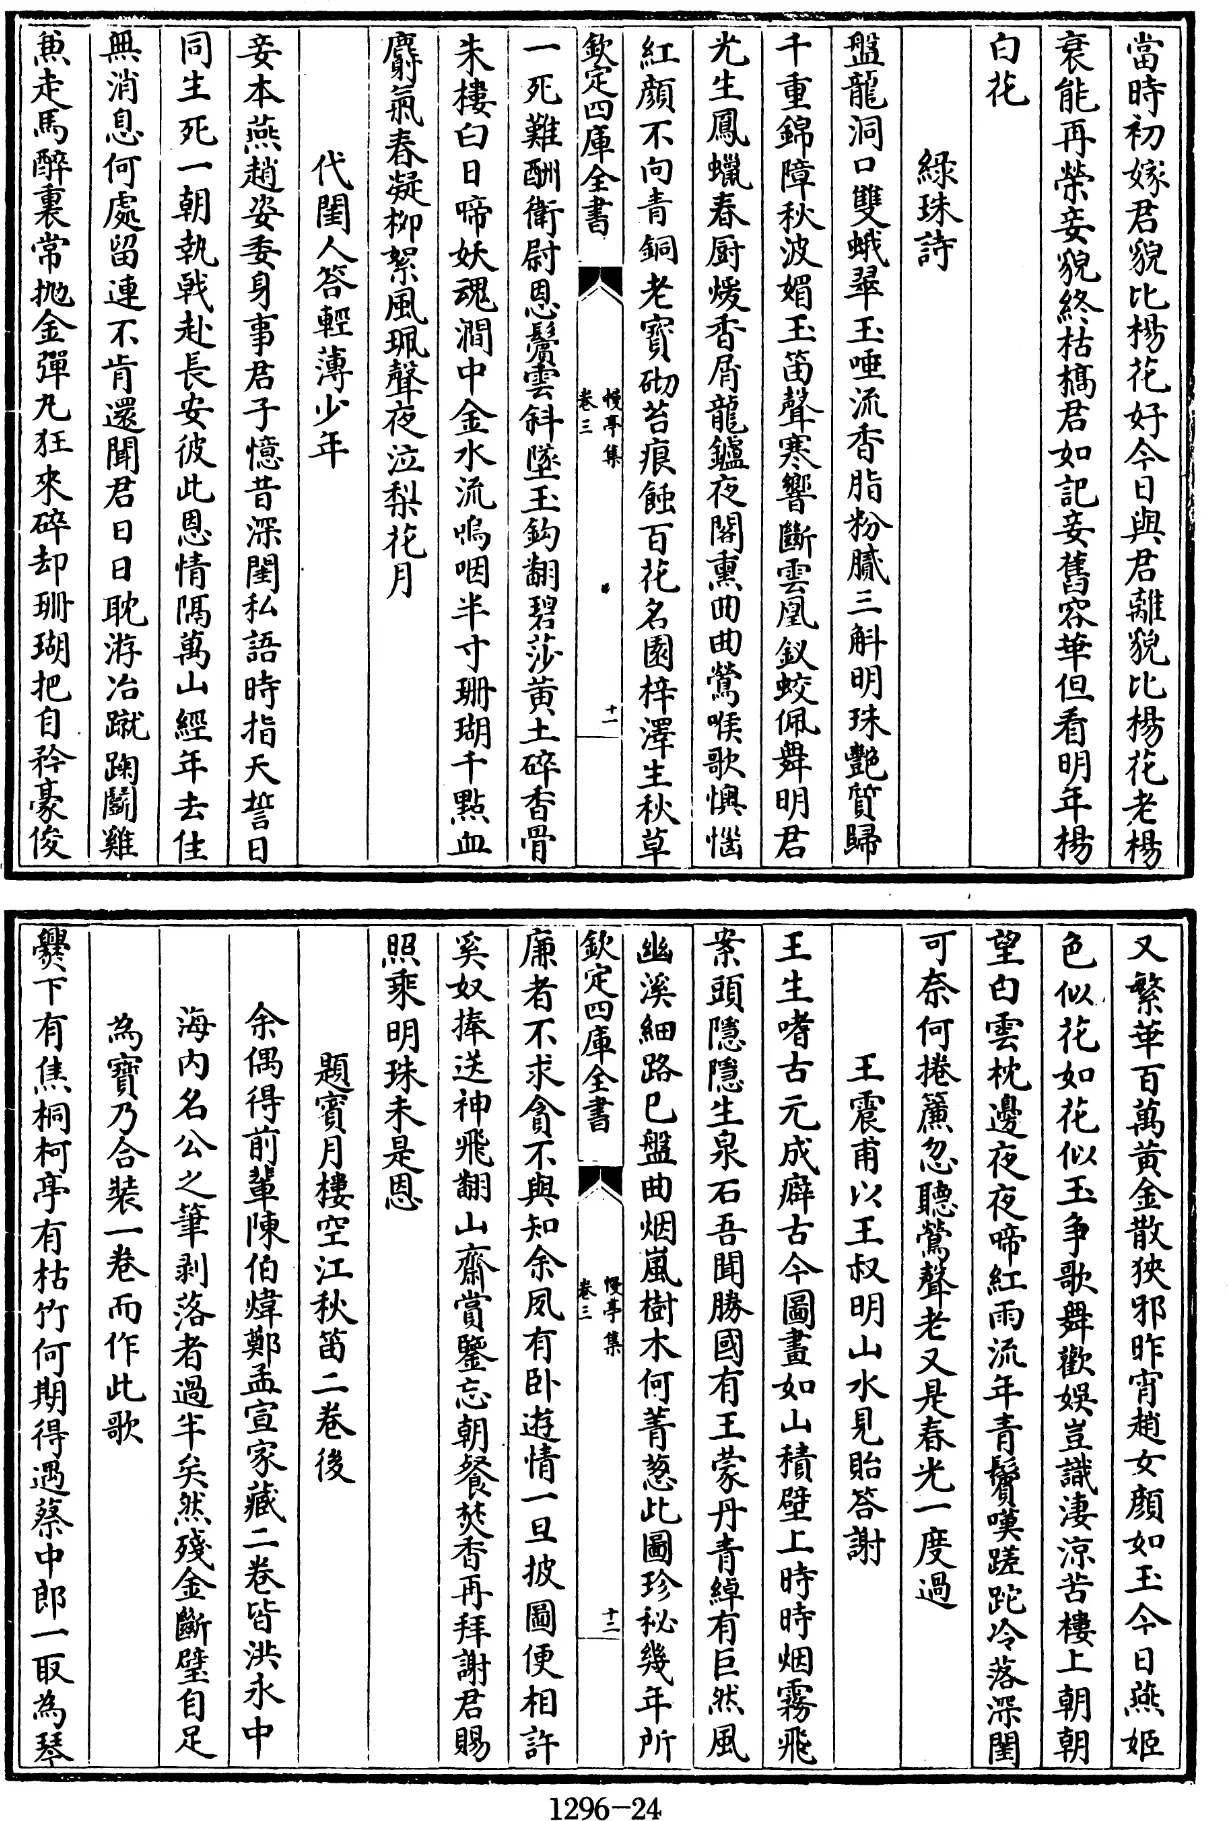 當時初嫁君貌比楊花好今日與君離貌比楊花老楊
衰能再榮妾貌終枯槁君如記妾舊容華但看明年楊
白花
綠珠詩
盤龍洞口雙蛾翠玉唾流香脂粉膩三斛明珠艷質歸
千重錦障秋波媚玉笛聲寒響斷雲凰釵蛟佩舞明君
光生鳳蠟春厨煖香屑龍鑪夜閣熏曲曲鶯喉歌懊惱
紅顏不向青銅老寳砌苔痕蝕百花名園梓澤生秋草
欽定四庫全書
慢亭集
卷三
十一
一死難酬衛尉恩鬟雲斜墜玉鈎翻碧莎黄土碎香骨
朱樓白日啼妖魂澗中金水流嗚咽半寸珊瑚千點血
麝氣春凝柳絮風珮聲夜泣梨花月
代閨人答輕薄少年
妾本燕趙姿委身事君子憶昔深閨私語時指天誓日
同生死一朝執戟赴長安彼此恩情隔萬山經年去住
無消息何處留連不肯還聞君日日耽游冶蹴踘鬬雞
兼走馬醉裏常拋金彈丸狂來碎却珊瑚把自矜豪俊
又繁華百萬黄金散狹邪昨宵趙女顏如玉今日燕姬
色似花如花似玉争歌舞歡娛豈識淒涼苦樓上朝朝
望白雲枕邊夜夜啼紅雨流年青鬢嘆蹉跎冷落深閨
可奈何捲簾忽聽鶯聲老又是春光一度過
王震甫以王叔明山水見貽答謝
王生嗜古元成癖古今圖畫如山積壁上時時烟霧飛
案頭隠隠生泉石吾聞勝國有王蒙丹青綽有巨然風
幽溪細路已盤曲烟嵐樹木何菁葱此圖珍秘幾年所
欽定四庫全書
慢亭集
卷三
十二
廉者不求貪不與知余夙有卧遊情一旦披圖便相許
奚奴捧送神飛翻山齋賞鑒忘朝餐焚香再拜謝君賜
照乘明珠未是恩
題賓月樓空江秋笛二巻後
余偶得前輩陳伯煒鄭孟宣家藏二巻皆洪永中
海内名公之筆剥落者過半矣然殘金斷璧自足
為寳乃合裝一巻而作此歌
爨下有焦桐柯亭有枯竹何期得遇蔡中郎一取為琴
1296-24